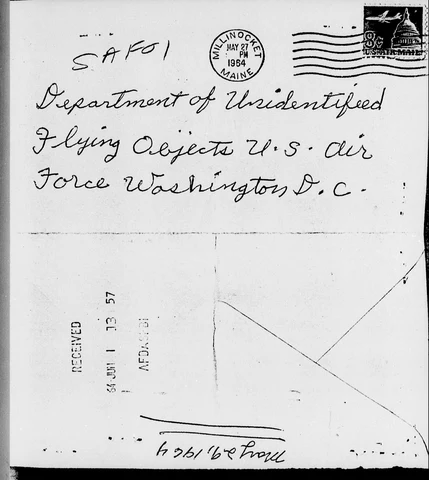 SAFOI
MILLINOCKET
MAY 27
PM
1964
MAINE
8c
U.S. AIR MAIL
Department of Unidentified
Flying Objects U.S. Air
Force Washington D.C.
RECEIVED
64 JUN 1 13 57
May 29, 1964